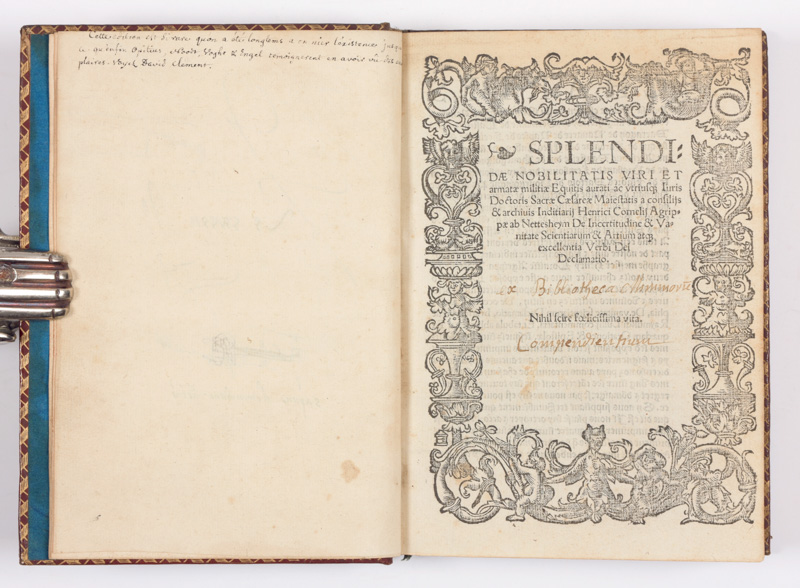 Cette edition est si rare quon a eté longtems a en nier l'existence jusqu
ce qu'enfin Opitius, Abode, Voght & Engel temoignerent en avoir vu des
plaires. Voyez David Clement.
SPLENDI-
DÆ NOBILITATIS VIRI ET
armatæ militiæ Equitis aurati ac vtriusq; Iuris
Doctoris Sacræ Cæsareæ Maiestatis a consilijs
& archiuis Inditiarij Henrici Cornelij Agrip-
pæ ab Nettesheym De Incertitudine & Va-
nitate Scientiarum & Artium atq;
excellentia Verbi Dei
Declamatio.
ex Bibliotheca Minimorum
Nihil scire fœlicissima vita.
Compendiensium